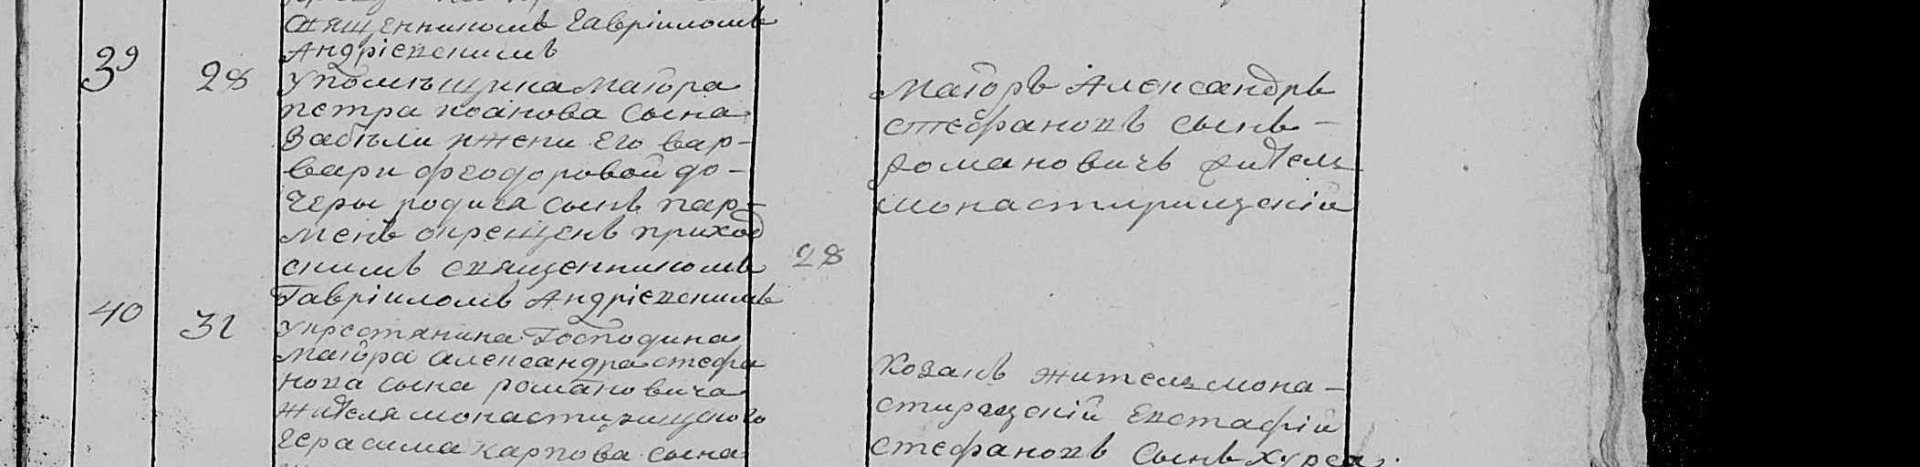 священникомъ Гавріиломъ
Андріевскимъ
39 28 у помѣщика маіора
петра иванова сына
Забѣли и жени Его вар-
вари феодоровой до-
черы родился сынъ пар-
менъ окрещенъ приход
скимъ священникомъ
Гавріиломъ Андріевскимъ
28
маіоръ Александръ
стефановъ сынъ
романовичъ житель
монастирищскій
40 31 у крестянина Господина
маіора александра стефа
нова сына романовича
жителя монастирищского
Герасима карпова сына
козакъ житель мона-
стирищскій Евстафій
стефановъ сынъ